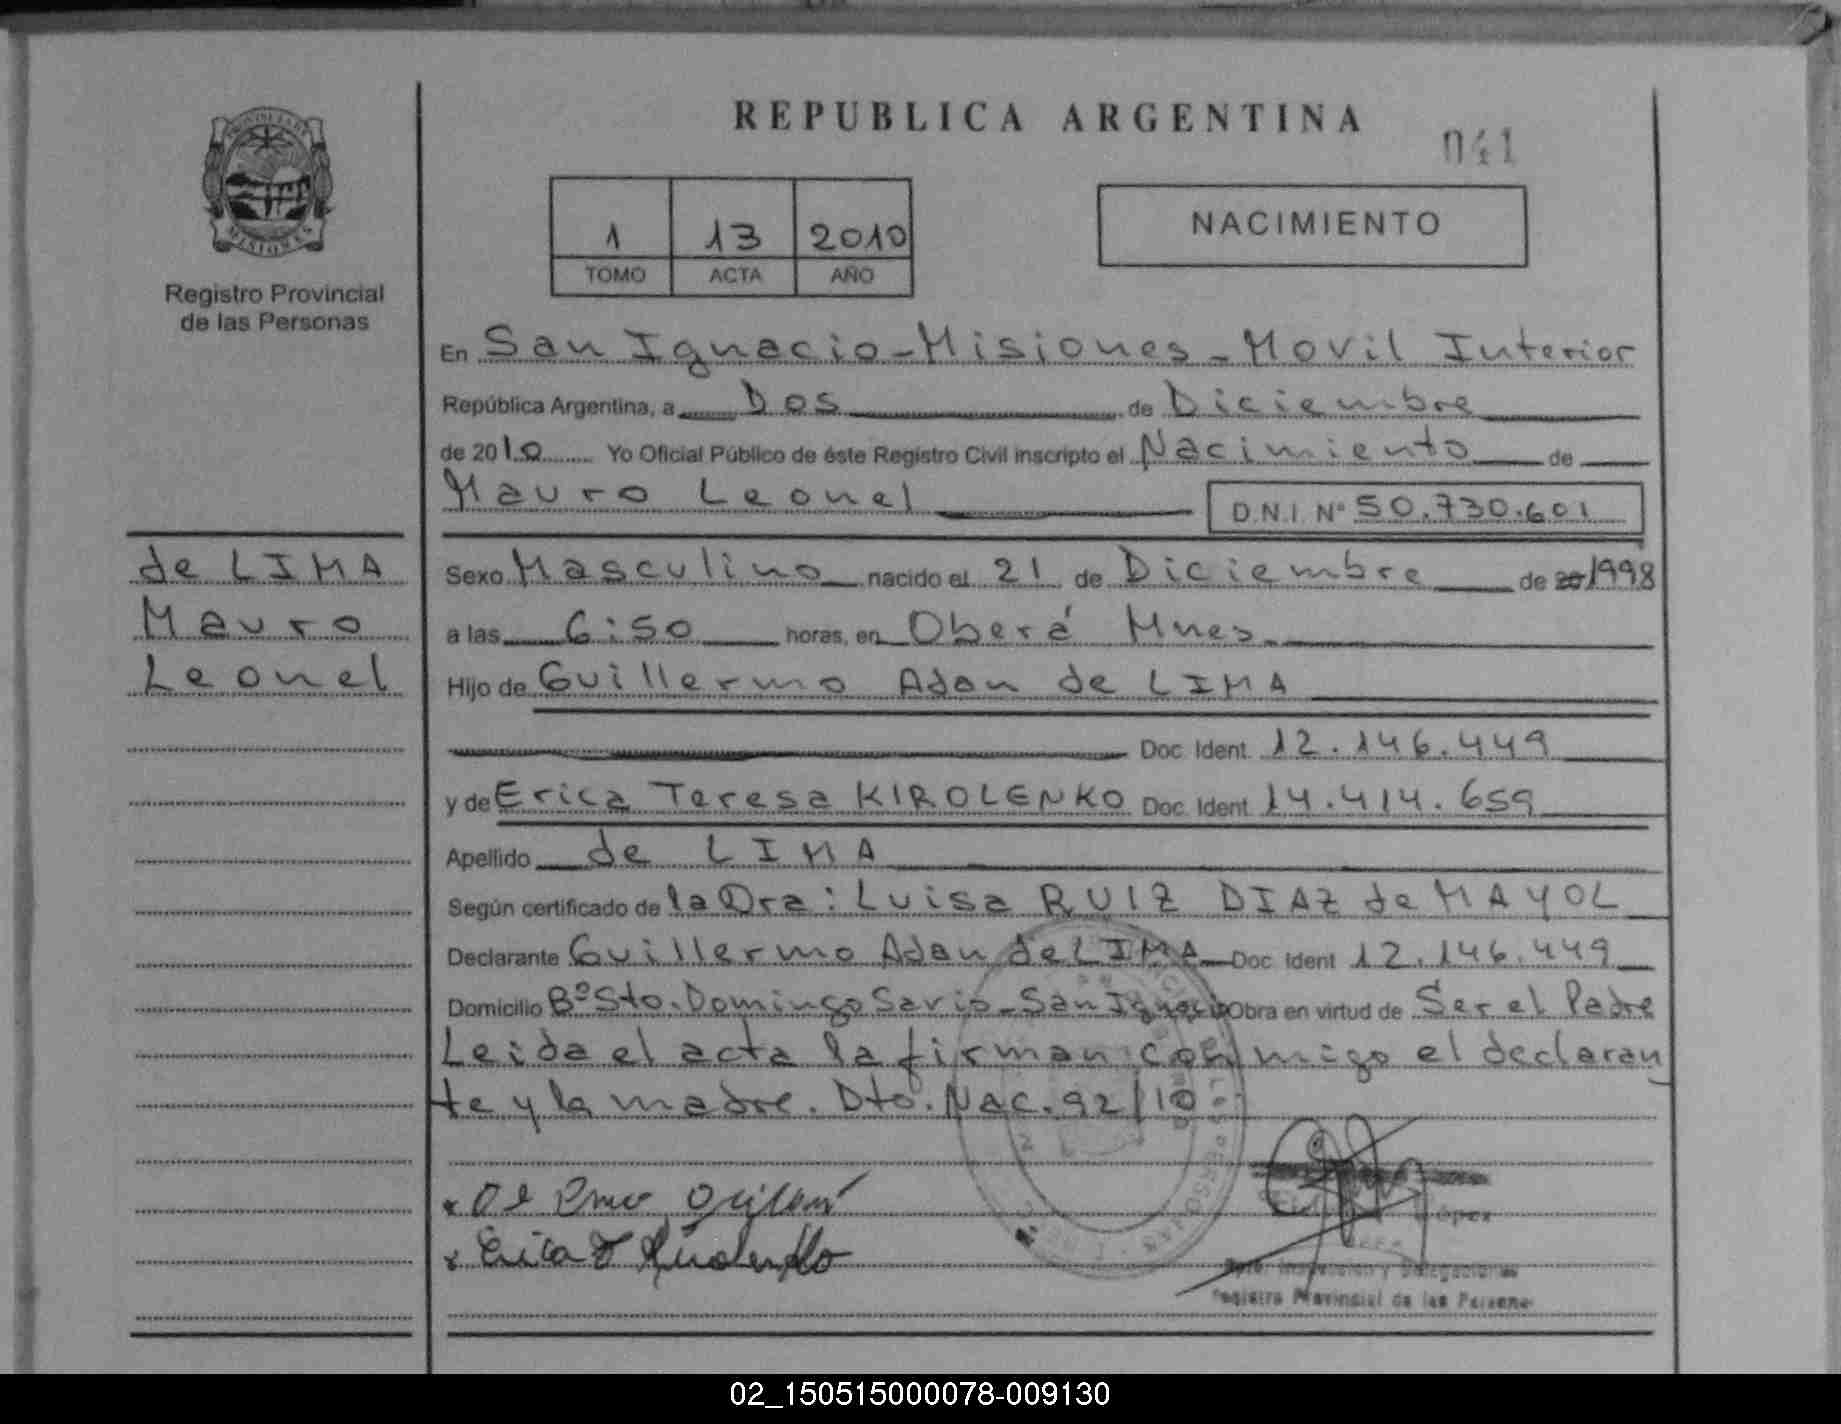 REPUBLICA ARGENTINA
041
PROVINCIA DE
MISIONES
Registro Provincial
de las Personas
1 13 2010
TOMO ACTA AÑO
NACIMIENTO
En San Ignacio - Misiones - Movil Interior
República Argentina, a Dos de Diciembre
de 2010 Yo Oficial Público de éste Registro Civil inscripto el Nacimiento de
Mauro Leonel D.N.I. Nº 50.730.601
de LIMA
Mauro
Leonel
Sexo Masculino nacido el 21 de Diciembre de 20 1998
a las 6:50 horas, en Oberá Mnes.
Hijo de Guillermo Adan de LIMA
Doc. Ident. 12.146.449
y de Erica Teresa KIROLENKO Doc. Ident. 14.414.659
Apellido de LIMA
Según certificado de la Dra: Luisa RUIZ DIAZ de MAYOL
Declarante Guillermo Adan de LIMA Doc. Ident 12.146.449
Domicilio Bº Sto. Domingo Savio - San Ignacio Obra en virtud de Ser el Padre
Leida el acta la firman conmigo el declaran
te y la madre. Dto. Nac. 92/10
Registro Provincial de las Personas
02_150515000078-009130